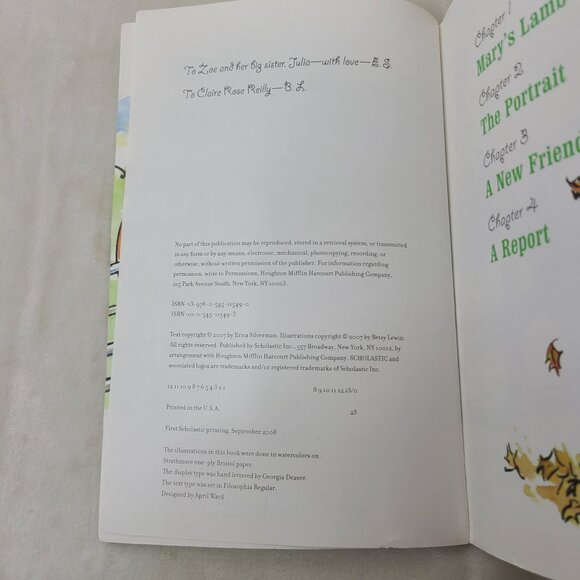 To Zoe and her big sister, Julia—with love—E. S.
To Claire Rose Reilly—B. L.
No part of this publication may be reproduced, stored in a retrieval system, or transmitted
in any form or by any means, electronic, mechanical, photocopying, recording, or
otherwise, without written permission of the publisher. For information regarding
permission, write to Permissions, Houghton Mifflin Harcourt Publishing Company,
215 Park Avenue South, New York, NY 10003.
ISBN-13: 978-0-545-11549-0
ISBN-10: 0-545-11549-3
Text copyright © 2007 by Erica Silverman. Illustrations copyright © 2007 by Betsy Lewin.
All rights reserved. Published by Scholastic Inc., 557 Broadway, New York, NY 10012, by
arrangement with Houghton Mifflin Harcourt Publishing Company. SCHOLASTIC and
associated logos are trademarks and/or registered trademarks of Scholastic Inc.
12 11 10 9 8 7 6 5 4 3 2 1 8 9 10 11 12 13/0
Printed in the U.S.A. 23
First Scholastic printing, September 2008
The illustrations in this book were done in watercolors on
Strathmore one-ply Bristol paper.
The display type was hand lettered by Georgia Deaver.
The text type was set in Filosophia Regular.
Designed by April Ward
Chapter 1
Mary's Lamb
Chapter 2
The Portrait
Chapter 3
A New Friend
Chapter 4
A Report